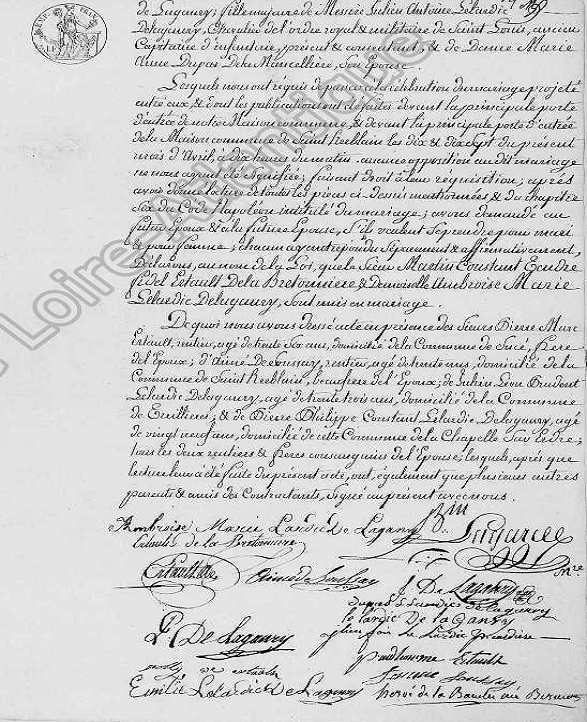 de Laganry; fille majeure de Messire Julien Antoine Lelardic
Delaganry, Chevalier de l'ordre royal & militaire de Saint Louis, ancien
Capitaine d'infanterie, présent & consentant, & de Dame Marie
Anne Dupas De la Mancellière, son épouse.
Lesquels nous ont requis de passer à la célébration du mariage projeté
entre eux, & dont les publications ont été faites devant la principale porte
d'entrée de notre Maison commune, & devant la principale porte d'entrée
de la Maison commune de Saint herblain les dix & dixsept du présent
mois d'Avril, à dix heures du matin. aucune opposition au dit mariage
ne nous ayant été signifiée; faisant droit à leur réquisition; après
avoir donné lecture de toutes les pièces ci-dessus mentionnées, & du chapitre
six du Code Napoléon intitulé du mariage; avons demandé au
futur époux & à la future épouse, s'ils veulent se prendre pour mari
& pour femme; chacun ayant répondu séparément & affirmativement,
Déclarons, au nom de la Loi, que le Sieur Martin Constant
fidel Ertault De la Bretonniere & Demoiselle Ambroise Marie
Lelardic Delaganry, sont unis en mariage.
De quoi nous avons dressé acte en présence des Sieurs Pierre Marc
Ertault, rentier, agé de trente six ans, domicilié de la Commune de Sucé, frère
de l'Epoux; d'Aimé De Soussay, rentier, agé de trente ans, domicilié de la
Commune de Saint herblain, beau frère de l'Epoux; de Julien Léon Prudent
Lelardic Delaganry, agé de trente trois ans, domicilié de la Commune
de & de Pierre Philippe Constant Lelardic Delaganry, agé
de vingt neuf ans, domicilié de cette Commune de la Chapelle Sur Erdre;
tous les deux rentiers & frères consanguins de l'Epouse; lesquels, après que
lecture leur a été faite du présent acte, ont, également que plusieurs autres
parents & amis des Contractants, signé au présent avec nous.
Ambroise Marie Lardic De Laganry
Ertault de la Bretonniere
Aimé de Soussay
J. De Laganry
le lardic De la Ganry
P. De Laganry
prudhomme Ertault
Soussay
Emilie Lelardic De Laganry